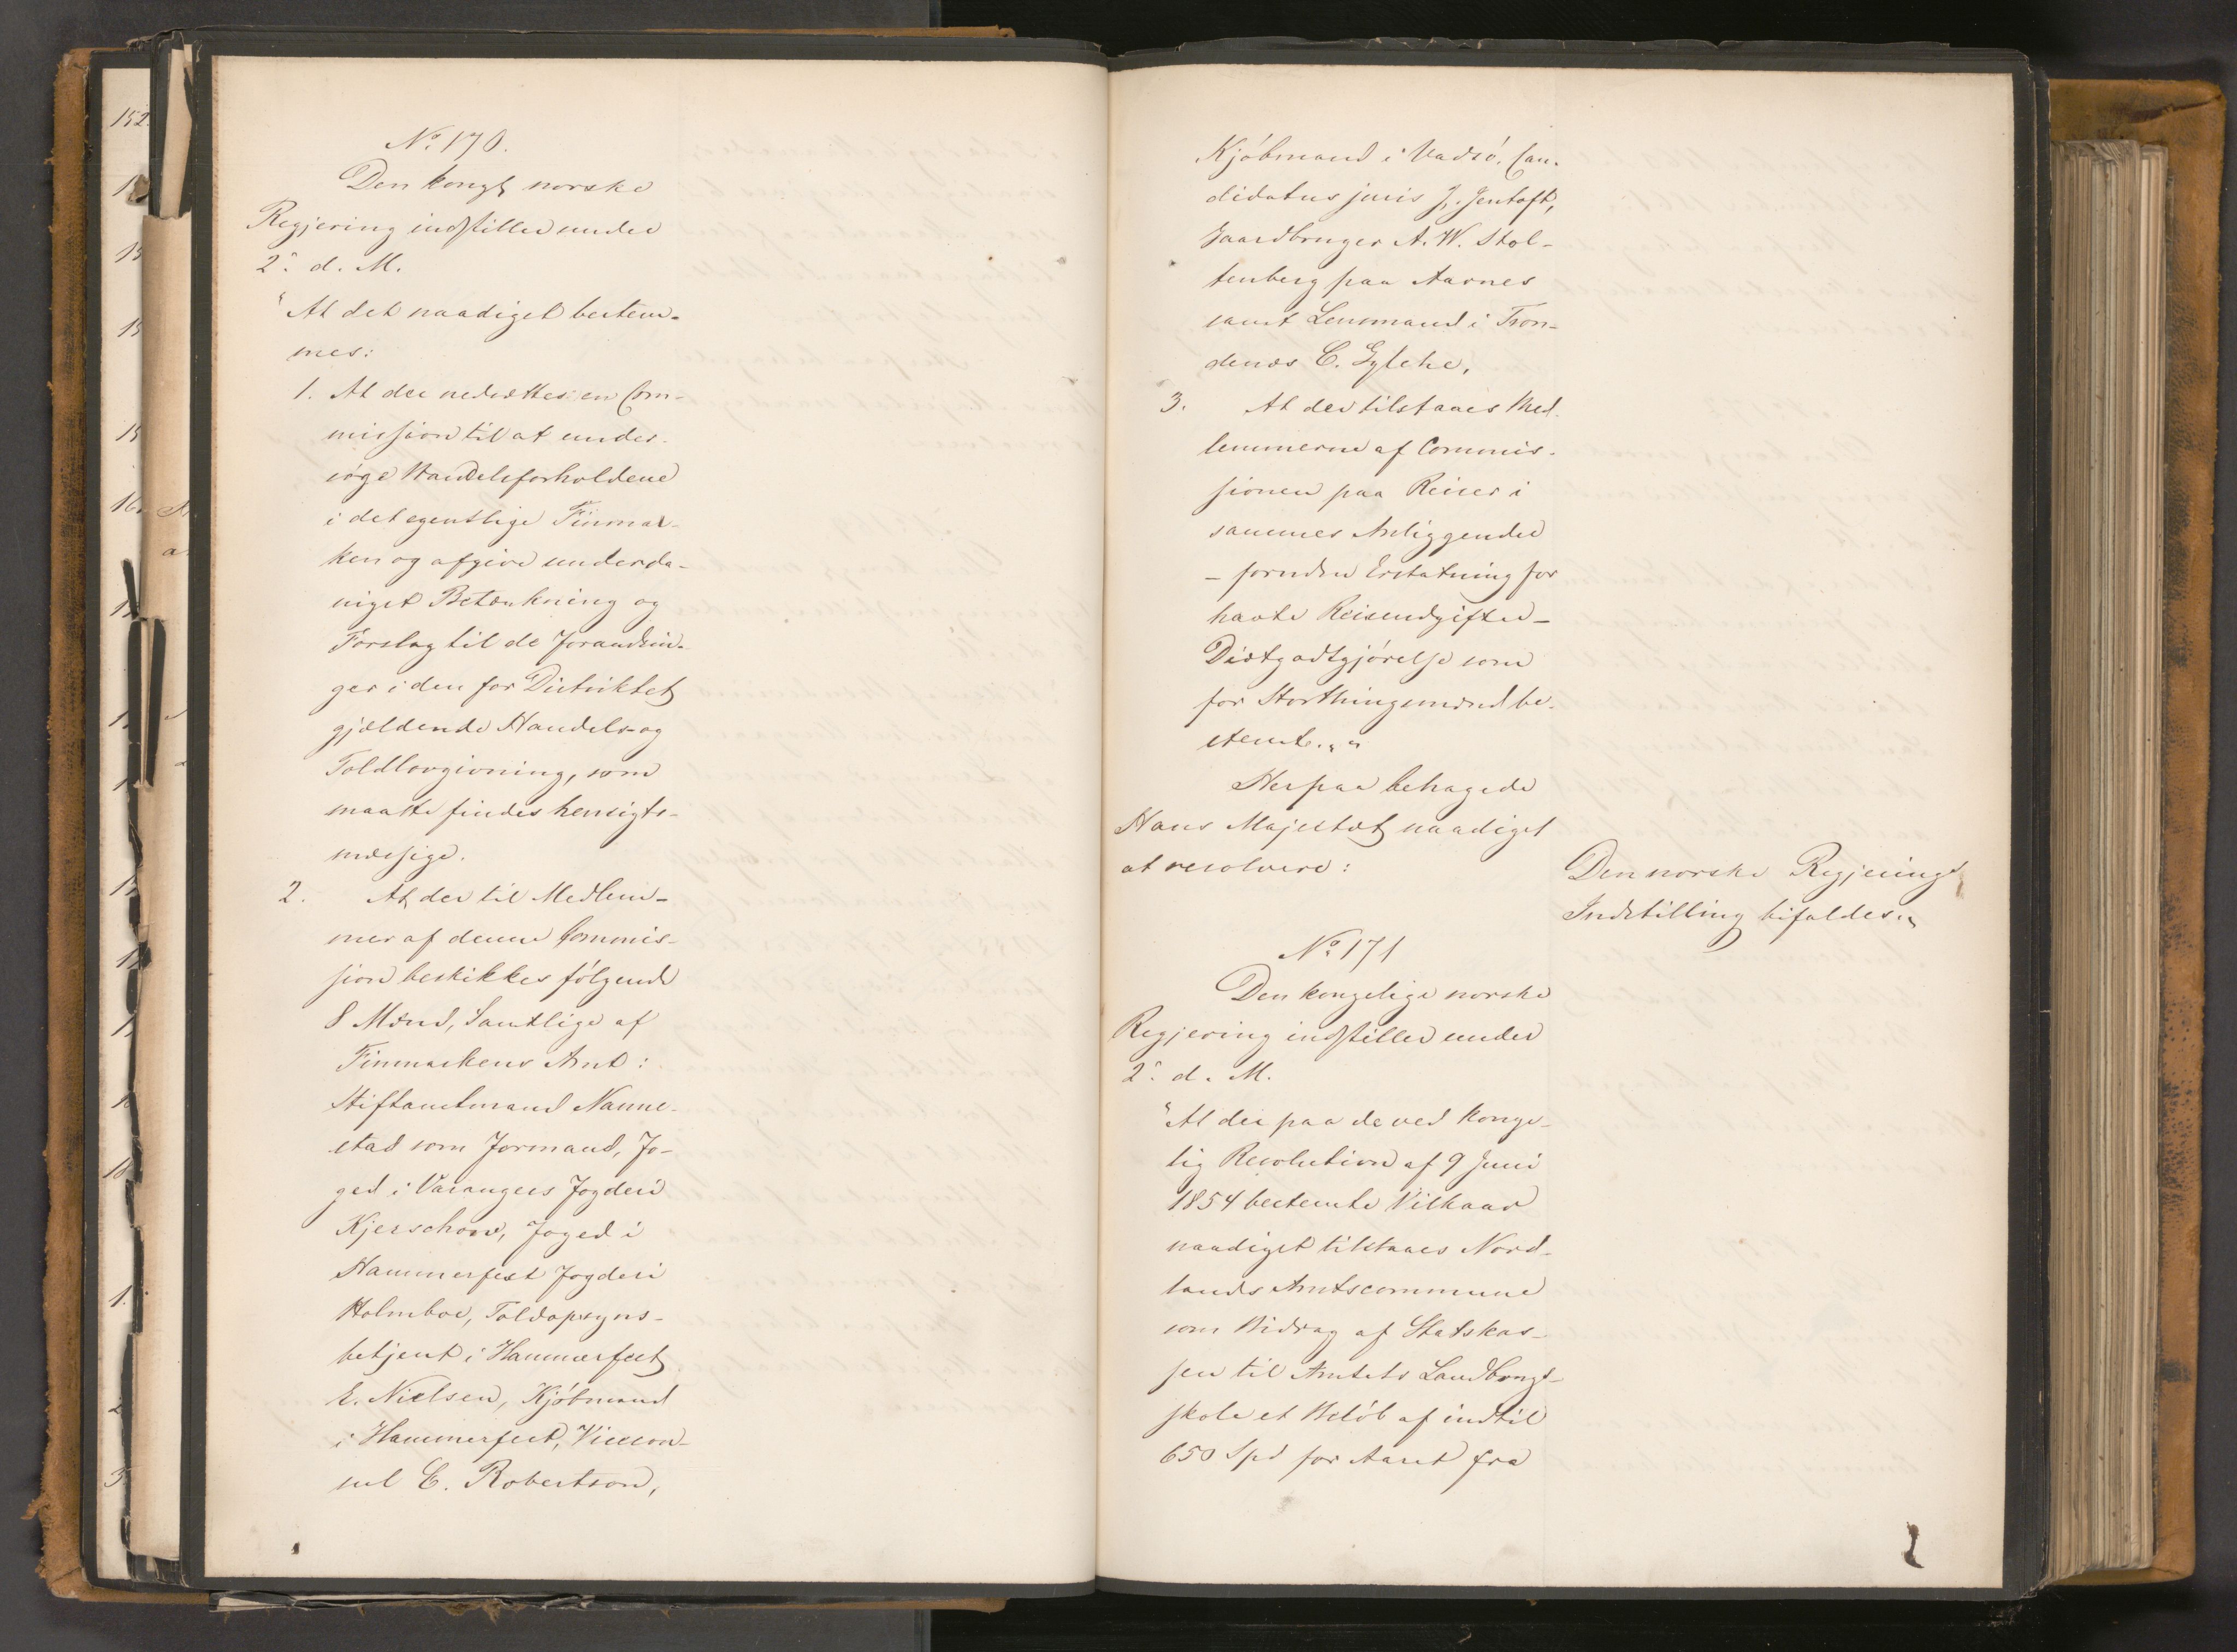 No. 170.
Den kongl norske
Regjering indstiller under
2. d. M.
"At det naadigst bestem-
mes:
1. At der nedsættes en Com-
mission til at under-
søge Handelsforholdene
i det egentlige Finmar-
ken og afgive underda-
nigst Betænkning og
Forslag til de Forandrin-
ger i den for Distriktet
gjældende Handels- og
Toldlovgivning, som
maatte findes hensigts-
mæssige.
2. At der til Medlem-
mer af denne Commis-
sion beskikkes følgende
8 Mænd, Samtlige af
Finmarkens Amt:
Stiftamtmand Nanne-
stad som Formand, Fo-
ged i Varangers Fogderi
Kjerschow, Foged i
Hammerfest Fogderi
Holmboe, Toldopsyns-
betjent i Hammerfest
E. Nielsen, Kjøbmand
i Hammerfest, Vicecon-
sul C. Robertson,
Kjøbmand i Vadsø, Can-
didatus juris J. Jentoft,
Gaardbruger A. W. Stol-
tenberg paa Aarnes
samt Lensmand i Tron-
denæs C.
3. At der tilstaaes Med-
lemmerne af Commis-
sionen paa Reiser i
sammes Anliggender
- foruden Erstatning for
havte Reiseudgifter -
Diætgodtgjørelse som
for Storthingsmænd be-
stemt."
Herpaa behagede
Hans Majestæt naadigst
at resolvere:
Den norske Regjerings
Indstilling bifaldes.
No. 171
Den kongelige norske
Regjering indstiller under
2. d. M.
"At der paa de ved konge-
lig Resolution af 9 Juni
1854 bestemte Vilkaar
naadigst tilstaaes Nord-
lands Amtscommune
som Bidrag af Statskas-
sen til Amtets Landbrugs-
skole et Beløb af indtil
650 Spd for Aaret fra